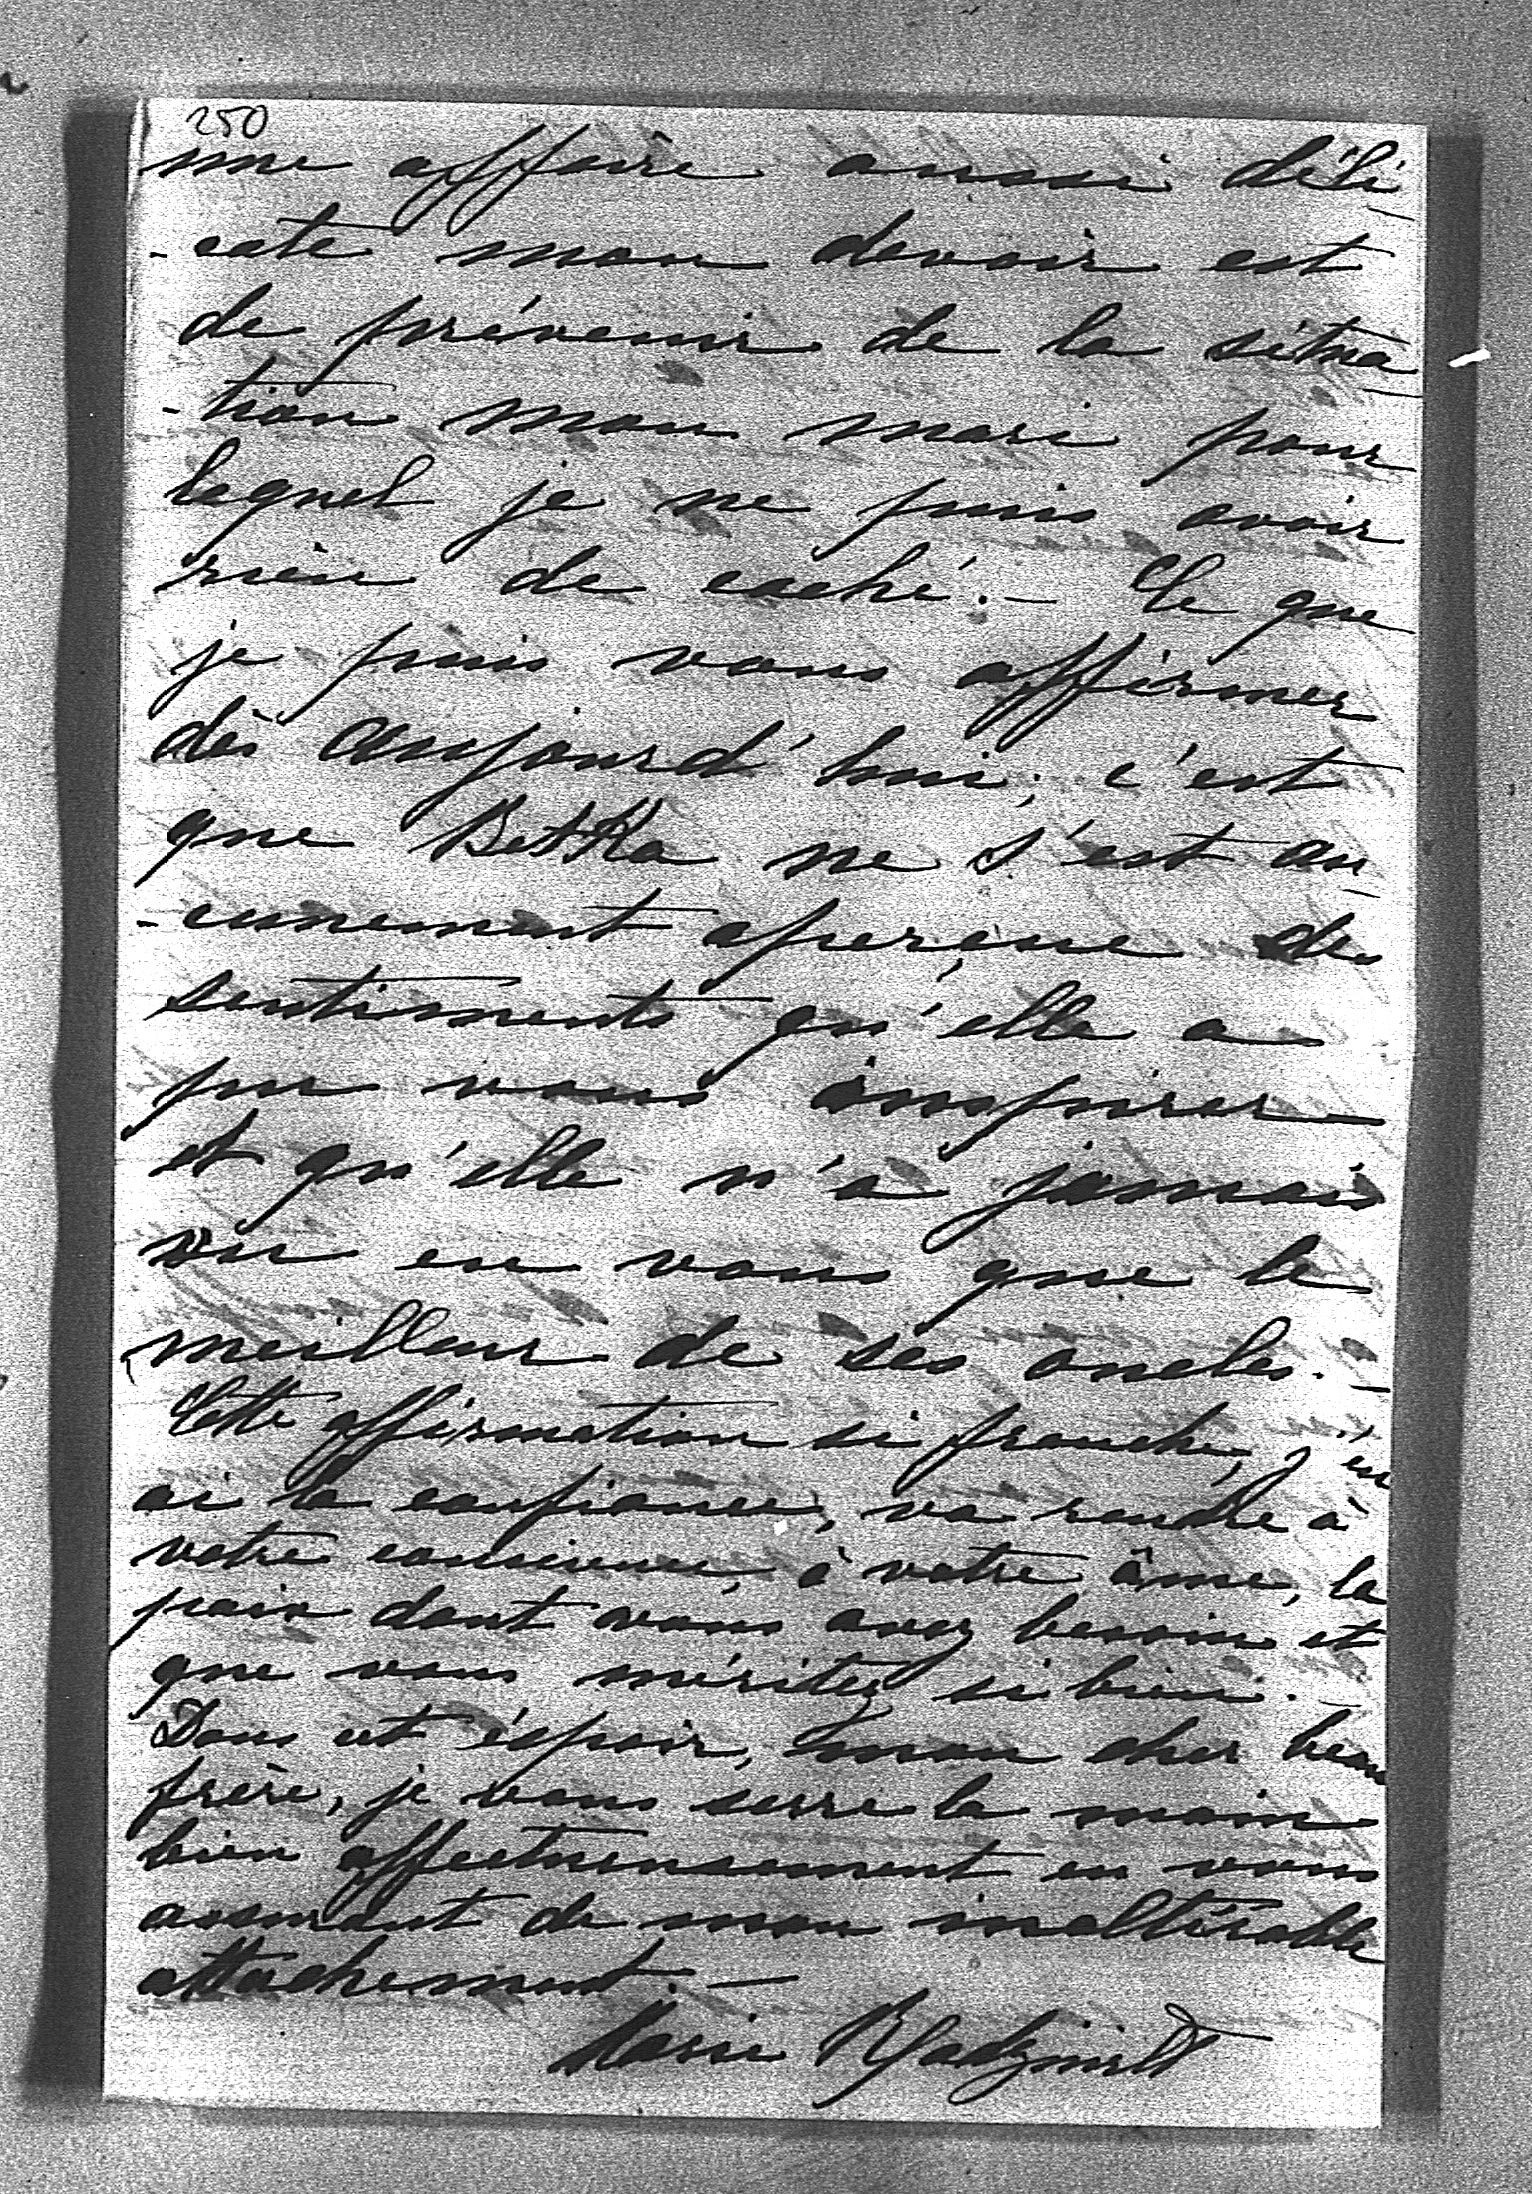 250
une affaire aussi déli
- cate mon devoir est
de prévenir de la situa
- tion mon mari pour
lequel je ne puis avoir
rien de caché. - Ce que
je puis vous affirmer
dès aujourd'hui, c'est
que Betka ne s'est au
- cunement aperçue des
sentiments qu'elle a
pu vous inspirer
et qu'elle n'a jamais
vu en vous que le
meilleur de ses oncles. -
Cette affirmation si franche, j'en
ai la confiance, va rendre à
votre conscience, à votre âme, la
paix dont vous avez besoin et
que vous méritez si bien. -
Dans cet éspoir, mon cher beau
frère, je vous serre la main
bien affectueusement en vous
assurant de mon inaltérable
attachement. -
Marie